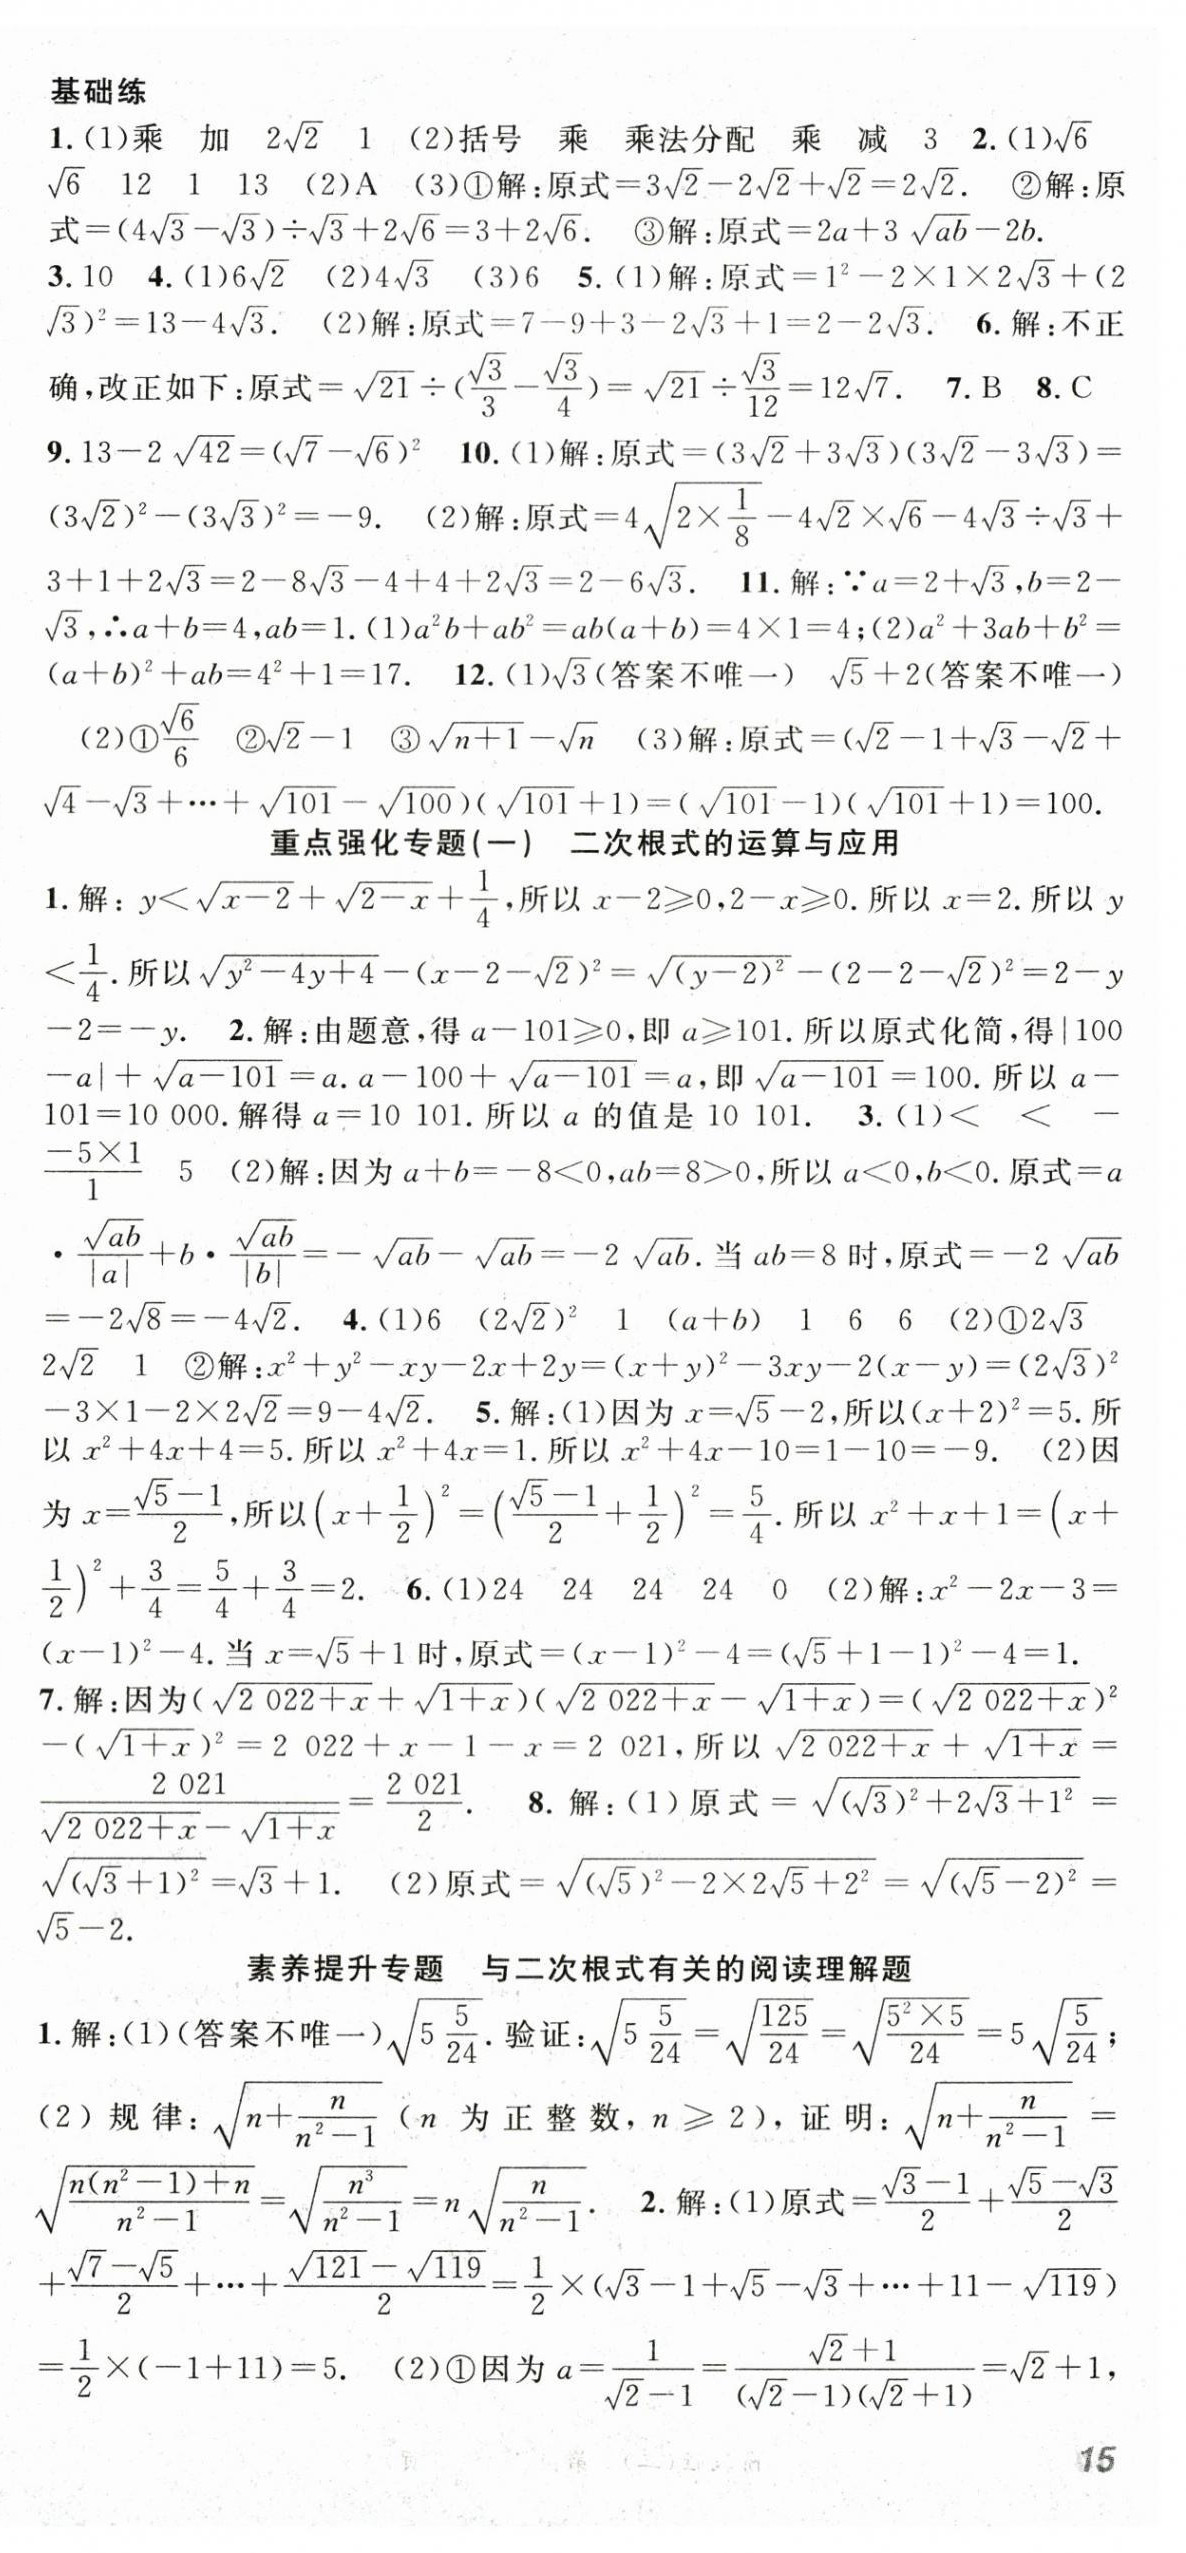 基础练
1.(1)乘 加 2√2 1 (2)括号 乘 乘法分配 乘 减 3 2.(1)√6
√6 12 1 13 (2)A (3)①解:原式=3√2-2√2+√2=2√2. ②解:原
式=(4√3-√3)÷√3+2√6=3+2√6. ③解:原式=2a+3√(ab)-2b.
3.10 4.(1)6√2 (2)4√3 (3)6 5.(1)解:原式=1²-2×1×2√3+(2
√3)²=13-4√3. (2)解:原式=7-9+3-2√3+1=2-2√3. 6.解:不正
确,改正如下:原式=√21÷(√3/3-√3/4)=√21÷√3/12=12√7. 7.B 8.C
9.13-2√42=(√7-√6)² 10.(1)解:原式=(3√2+3√3)(3√2-3√3)=
(3√2)²-(3√3)²=-9. (2)解:原式=4√(2×1/8)-4√2×√6-4√3÷√3+
3+1+2√3=2-8√3-4+4+2√3=2-6√3. 11.解:∵a=2+√3,b=2-
√3,∴a+b=4,ab=1.(1)a²b+ab²=ab(a+b)=4×1=4;(2)a²+3ab+b²=
(a+b)²+ab=4²+1=17. 12.(1)√3(答案不唯一) √5+2(答案不唯一)
(2)①√6/6 ②√2-1 ③√(n+1)-√n (3)解:原式=(√2-1+√3-√2+
√4-√3+…+√101-√100)(√101+1)=(√101-1)(√101+1)=100.
重点强化专题(一) 二次根式的运算与应用
1.解:y<√(x-2)+√(2-x)+1/4,所以 x-2≥0,2-x≥0.所以 x=2.所以 y
<1/4.所以√(y²-4y+4)-(x-2-√2)²=√((y-2)²)-(2-2-√2)²=2-y
-2=-y. 2.解:由题意,得 a-101≥0,即 a≥101.所以原式化简,得|100
-a|+√(a-101)=a.a-100+√(a-101)=a,即√(a-101)=100.所以 a-
101=10 000.解得 a=10 101.所以 a 的值是 10 101. 3.(1)< < -
(-5×1)/1 5 (2)解:因为 a+b=-8<0,ab=8>0,所以 a<0,b<0.原式=a
·√(ab)/|a|+b·√(ab)/|b|=-√(ab)-√(ab)=-2√(ab).当 ab=8 时,原式=-2√(ab)
=-2√8=-4√2. 4.(1)6 (2√2)² 1 (a+b) 1 6 6 (2)①2√3
2√2 1 ②解:x²+y²-xy-2x+2y=(x+y)²-3xy-2(x-y)=(2√3)²
-3×1-2×2√2=9-4√2. 5.解:(1)因为 x=√5-2,所以(x+2)²=5.所
以 x²+4x+4=5.所以 x²+4x=1.所以 x²+4x-10=1-10=-9. (2)因
为 x=(√5-1)/2,所以(x+1/2)²=((√5-1)/2+1/2)²=5/4.所以 x²+x+1=(x+
1/2)²+3/4=5/4+3/4=2. 6.(1)24 24 24 24 0 (2)解:x²-2x-3=
(x-1)²-4.当 x=√5+1 时,原式=(x-1)²-4=(√5+1-1)²-4=1.
7.解:因为(√(2 022+x)+√(1+x))(√(2 022+x)-√(1+x))=(√(2 022+x))²
-(√(1+x))²=2 022+x-1-x=2 021,所以 √(2 022+x)+√(1+x)=
2 021/(√(2 022+x)-√(1+x))=2 021/2. 8.解:(1)原式=√((√3)²+2√3+1²)=
√((√3+1)²)=√3+1. (2)原式=√((√5)²-2×2√5+2²)=√((√5-2)²)=
√5-2.
素养提升专题 与二次根式有关的阅读理解题
1.解:(1)(答案不唯一)√(5 5/24).验证:√(5 5/24)=√(125/24)=√((5²×5)/24)=5√(5/24);
(2)规律:√(n+n/(n²-1))(n 为正整数,n≥2),证明:√(n+n/(n²-1))=
√((n(n²-1)+n)/(n²-1))=√(n³/(n²-1))=n√(n/(n²-1)). 2.解:(1)原式=(√3-1)/2+(√5-√3)/2
+(√7-√5)/2+…+(√121-√119)/2=1/2×(√3-1+√5-√3+…+11-√119)
=1/2×(-1+11)=5. (2)①因为 a=1/(√2-1)=(√2+1)/((√2-1)(√2+1))=√2+1,
15